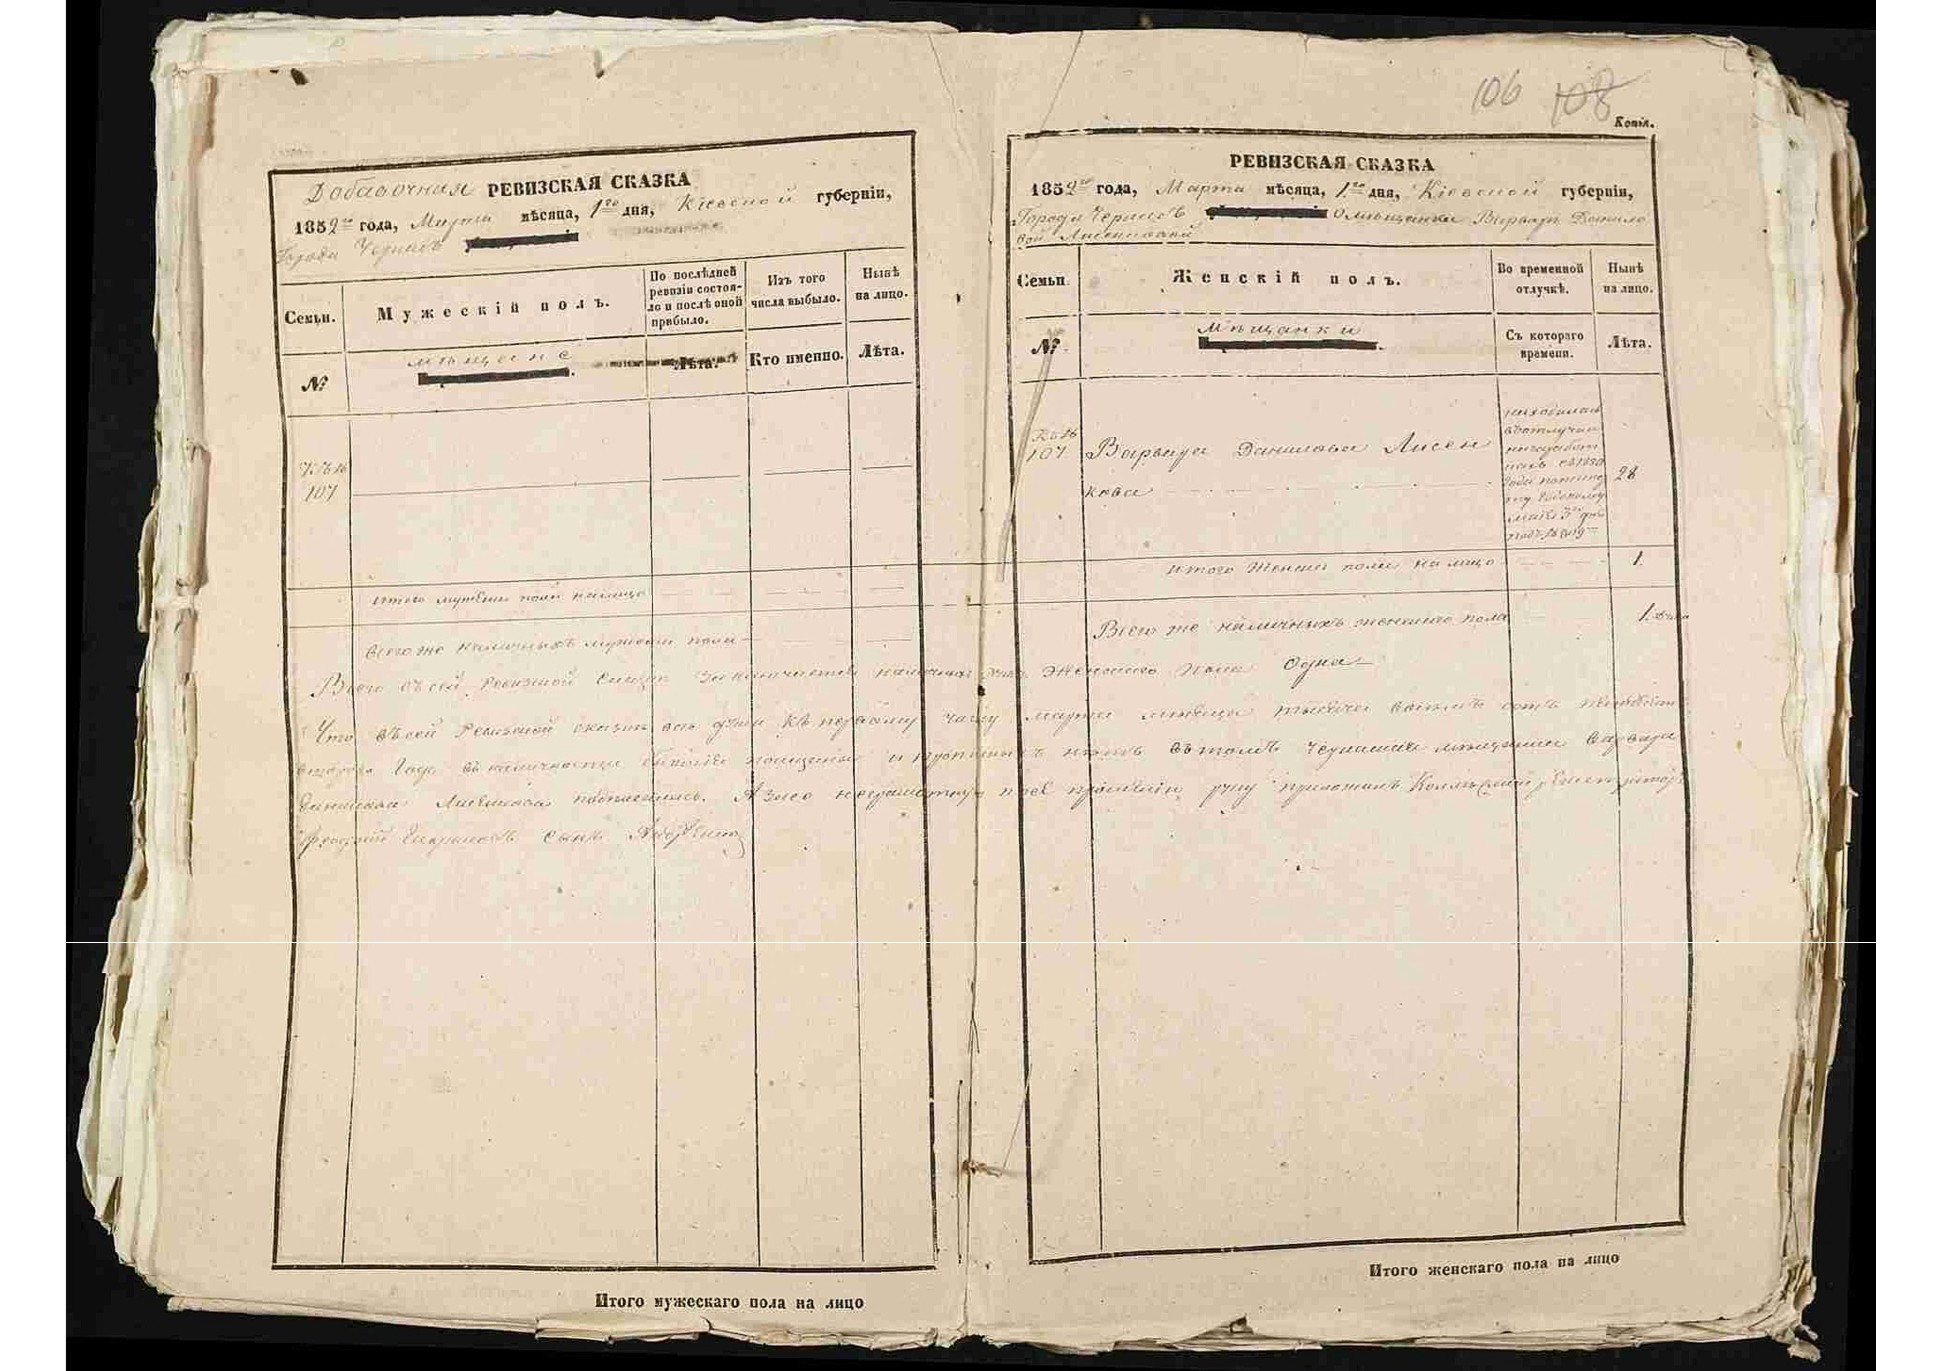 106 108
Копія.
Добавочная РЕВИЗСКАЯ СКАЗКА
1852го года, Марта мѣсяца, 1го дня, Кіевской губерніи,
Города Черкасъ
Семьи.
Мужескій полъ.
По послѣдней ревизіи состоя-
ло и послѣ оной
прибыло.
Изъ того
числа выбыло.
Нынѣ
на лицо.
№
мѣщане
Лѣта.
Кто именно.
Лѣта.
107
Итого мужеска пола на лицо
Всего же наличныхъ мужеска пола
РЕВИЗСКАЯ СКАЗКА
1852го года, Марта мѣсяца, 1го дня, Кіевской губерніи,
Города Черкасъ О мѣщанке Варваре Данило
вой Лисенковой
Семьи.
Женскій полъ.
Во временной
отлучкѣ.
Нынѣ
на лицо.
№
Мѣщанки
Съ котораго
времени.
Лѣта.
107
Варвара Данилова Лисен
кова
находилась
въ отлучки
28
Итого женска пола на лицо 1
Всего же наличныхъ женскаго пола 1
Всего въ сей Ревизской Сказке наличныхъ Женского Пола Одна
Что въ сей Ревизской сказке все души къ первому числу марта месяца тысяча восемь сотъ
втораго Года въ наличности и пропущенныхъ нетъ въ томъ Черкаская мещанка Варвара
Данилова Лисенкова А вместо неграмотную по её прошению руку приложилъ Коллежский регистраторъ
сынъ
Итого мужескаго пола на лицо
Итого женскаго пола на лицо